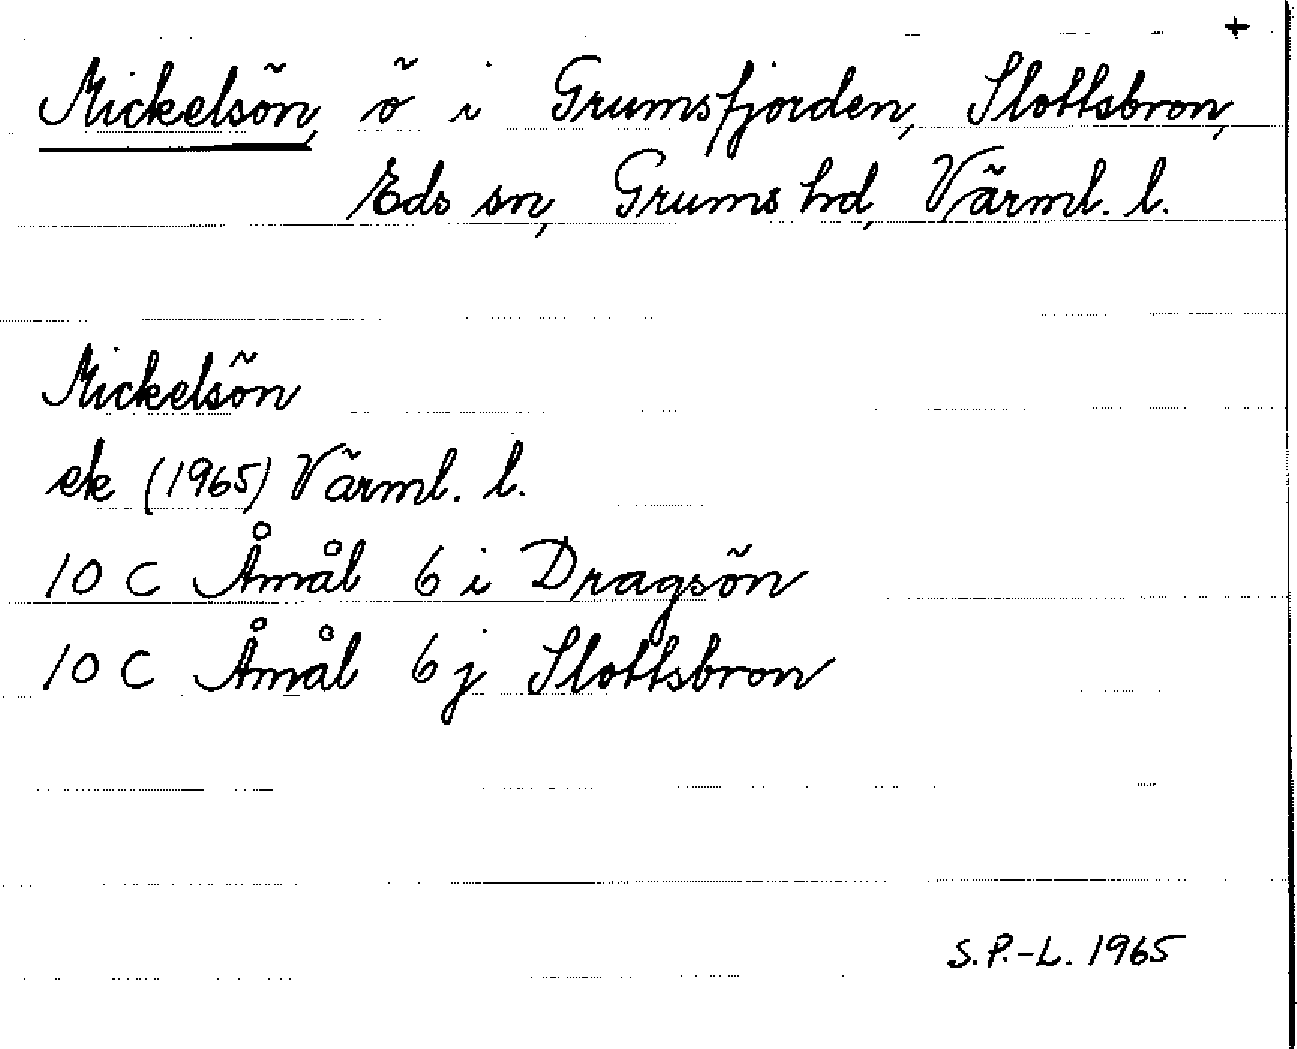 +
Mickelsön, ö i Grumsfjorden, Slottsbron,
Eds sn, Grums hd, Värml. l.
Mickelsön
ek (1965) Värml. l.
10 C Åmål 6 i Dragsön
10 C Åmål 6 j Slottsbron
S.P.-L. 1965